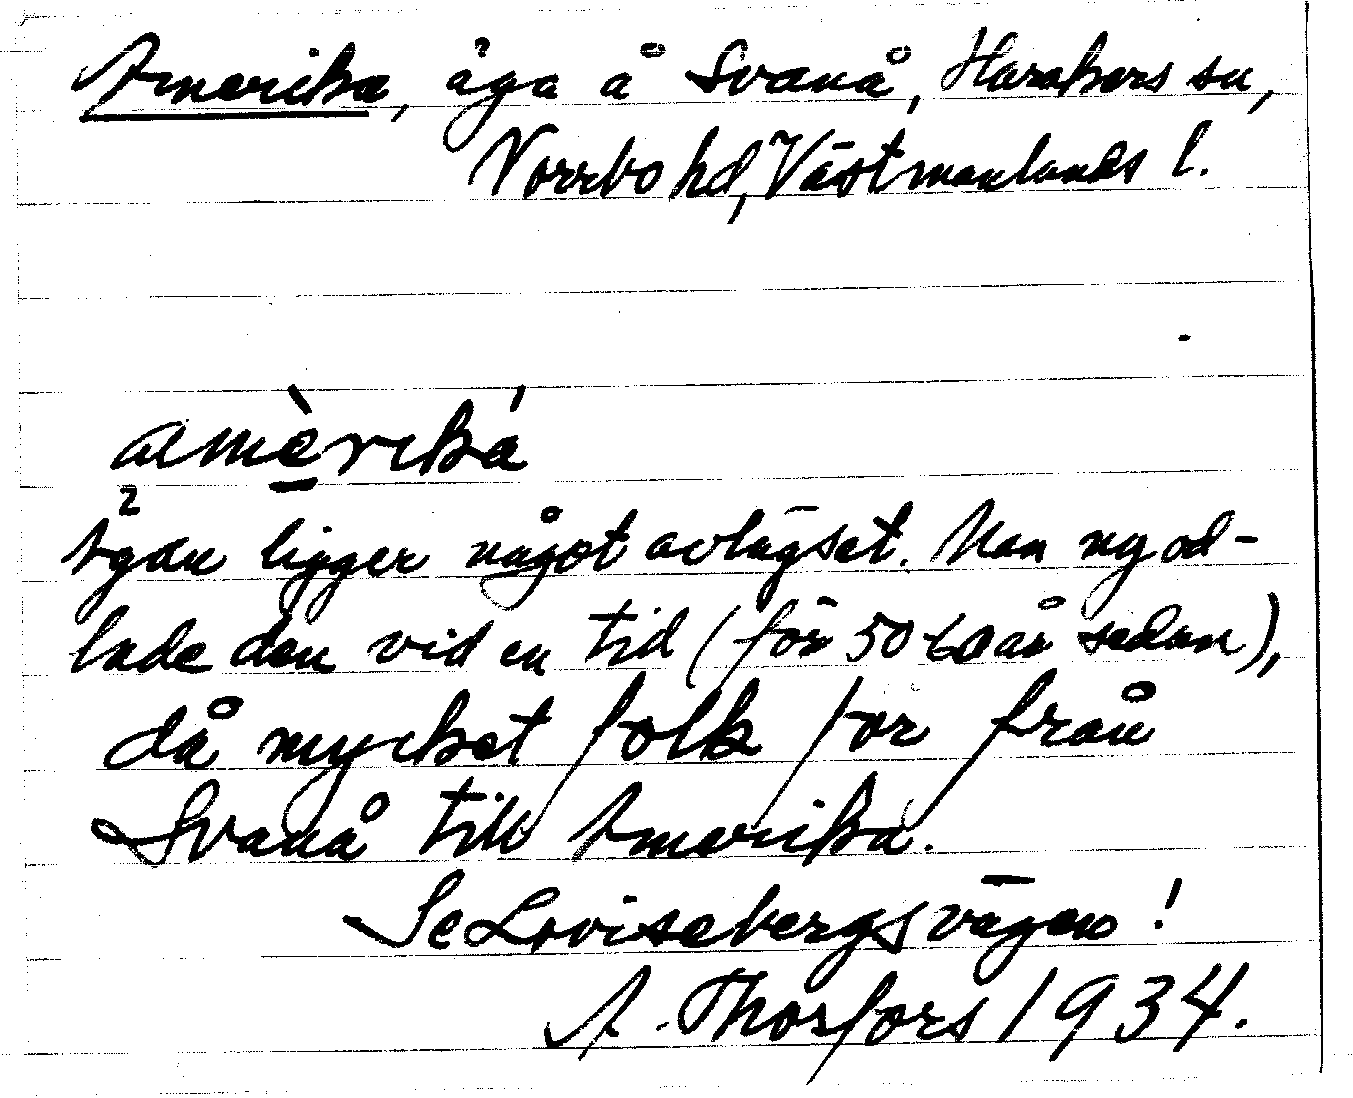 Amerika, äga å Svanå, Harakers sn,
Norrbo hd, Västmanlands l.
amèriká
Ägan ligger något avlägset. Man nyod-
lade den vid en tid (för 50 60 år sedan),
då mycket folk for från
Svanå till Amerika.
Se Lovisebergsvägen!
A. Thorsfors 1934.